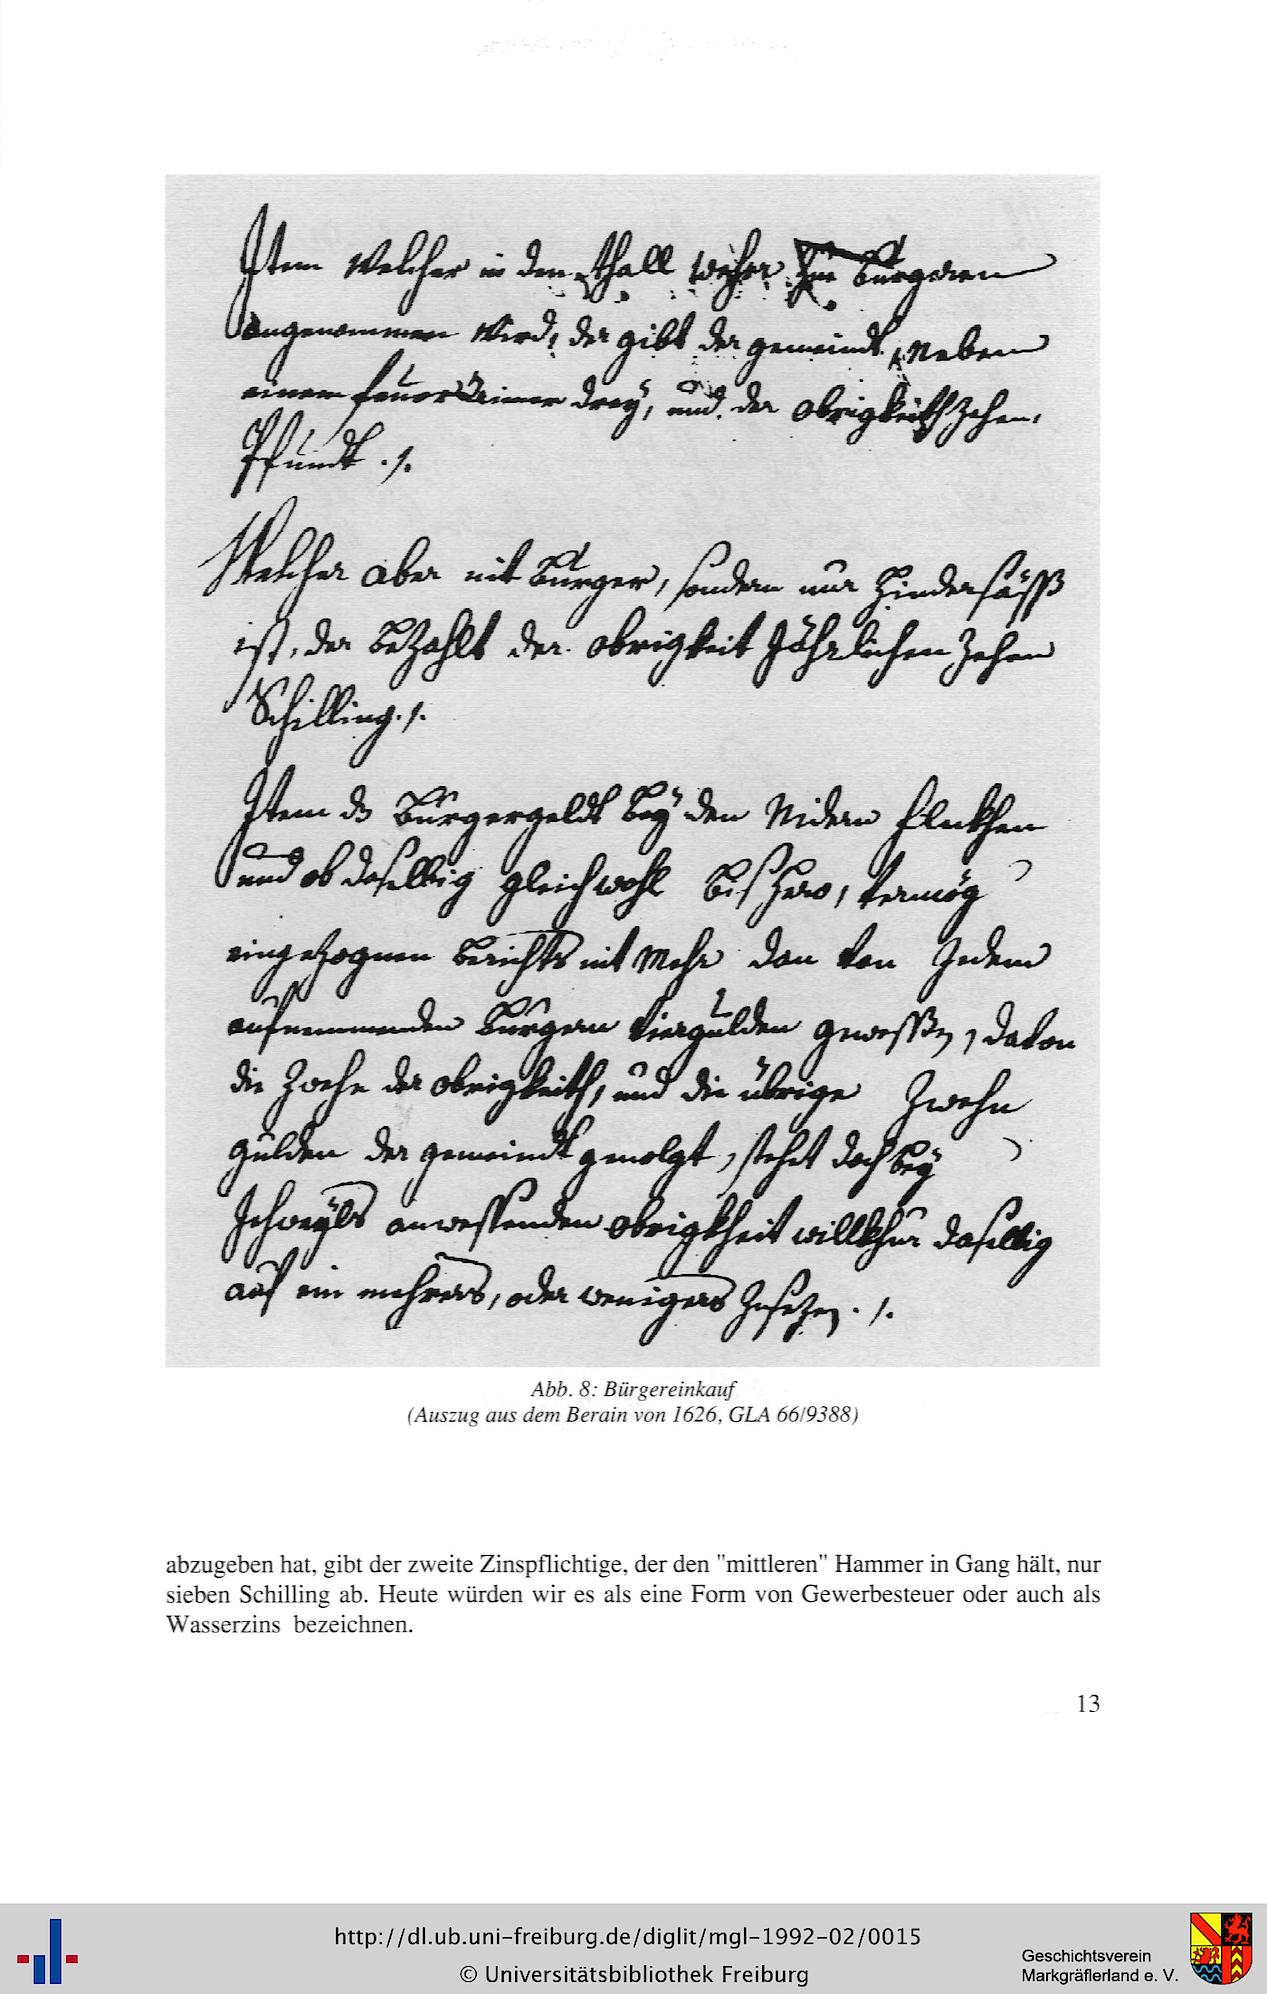 Item Welcher in den thall wehr Zue Burgeren
angenommen Wird, der gibt der gemeindt, Neben
einem feuor Aimer drey, und der obrigkeith Zehen
Pfundt ./.
Welcher aber nit Burger, sondern nur Hindersäss
ist, der Bezahlt der obrigkeit Jährlichen Zehen
Schilling ./.
Item ds Burgergeldt bey den Nidern
und ob dasselbig gleichwohl bishero, vermög
eingezognen Berichts nit Mehr dan von Jedem
aufnemmenden Burgern vier gulden gewessen, davon
die Zwehn der obrigkeith, und die übrige Zwehn
gulden der gemeindt gevolgt, stehet doch bey
Jehweyls anwessenden obrigkheit willkhur dasselbig
auf ein mehrers, oder wenigers Zusezen ./.
Abb. 8: Bürgereinkauf
(Auszug aus dem Berain von 1626, GLA 66/9388)
abzugeben hat, gibt der zweite Zinspflichtige, der den "mittleren" Hammer in Gang hält, nur
sieben Schilling ab. Heute würden wir es als eine Form von Gewerbesteuer oder auch als
Wasserzins bezeichnen.
13
http://dl.ub.uni-freiburg.de/diglit/mgl-1992-02/0015
© Universitätsbibliothek Freiburg
Geschichtsverein
Markgräflerland e. V.